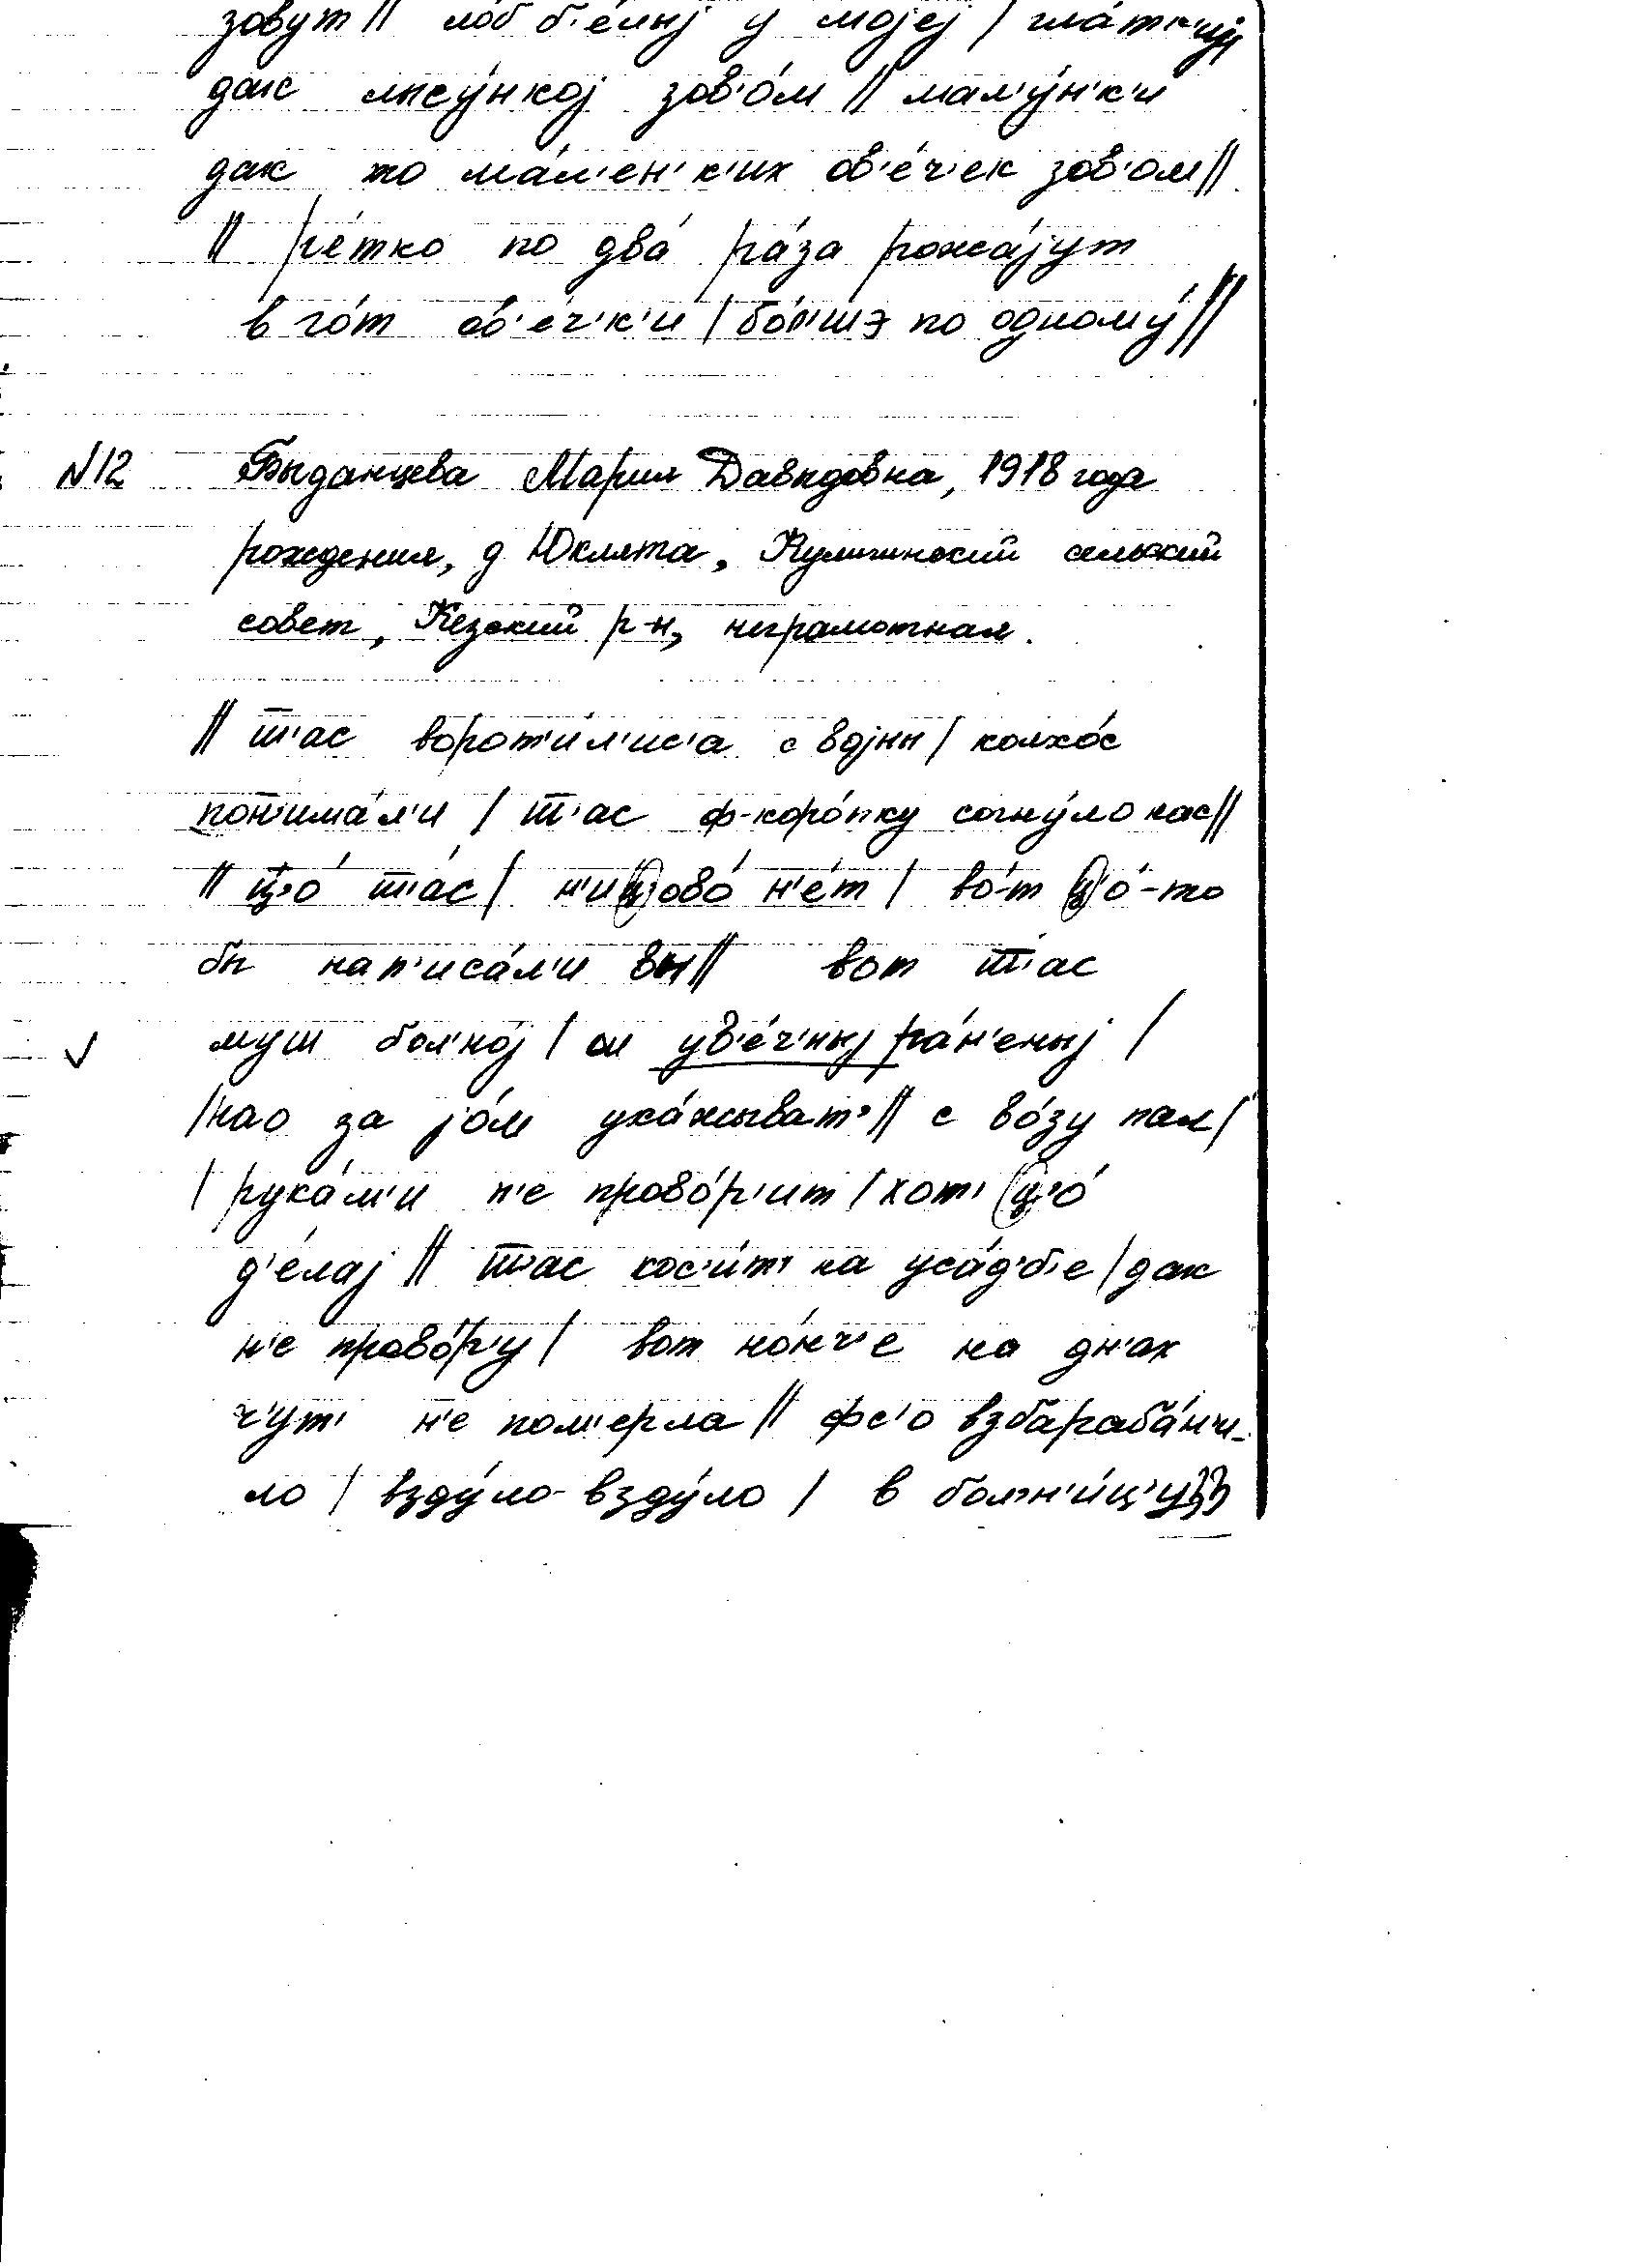 зовут // ло́б б'е́лыј у мојеј / гла́тк'иј
дак лысу́нкој зов'о́м // мал'у́н'к'и
дак то ма́л'ен'к'их ов'е́ч'ек зов'ом //
// ре́тко по два́ ра́за рожа́јут
в го́т ов'е́ч'к'и / бо́л'шэ по одному́ //
N12 Быданцева Мария Давыдовна, 1918 года
рождения, д Юклята, Кулигинский сельский
совет, Кезский р-н, неграмотная.
// т'ас ворот'и́л'ис'а с војны / колхо́с
пон'има́л'и / т'ас ф-коро́пку согну́ло нас //
// ц'о́ т'а́с / н'иц'ово́ н'е́т / во́-т ц'о́-то
бы нап'иса́л'и вы // вот т'ас
муш бол'но́ј / ои ув'е́ч'ныј ра́н'еныј /
/ нао за јо́м уха́жыват' // с во́зу пал /
/ рука́м'и н'е прово́р'ит / хот' ц'о́
д'е́лај // т'ас кос'и́т' на уса́д'б'е / дак
н'е прово́р'у / вот но́нч'е на дн'ах
ч'ут' н'е пом'ерла // фс'о взбараба́н'и-
ло / взду́ло-взду́ло / в бол'н'и́ц'у